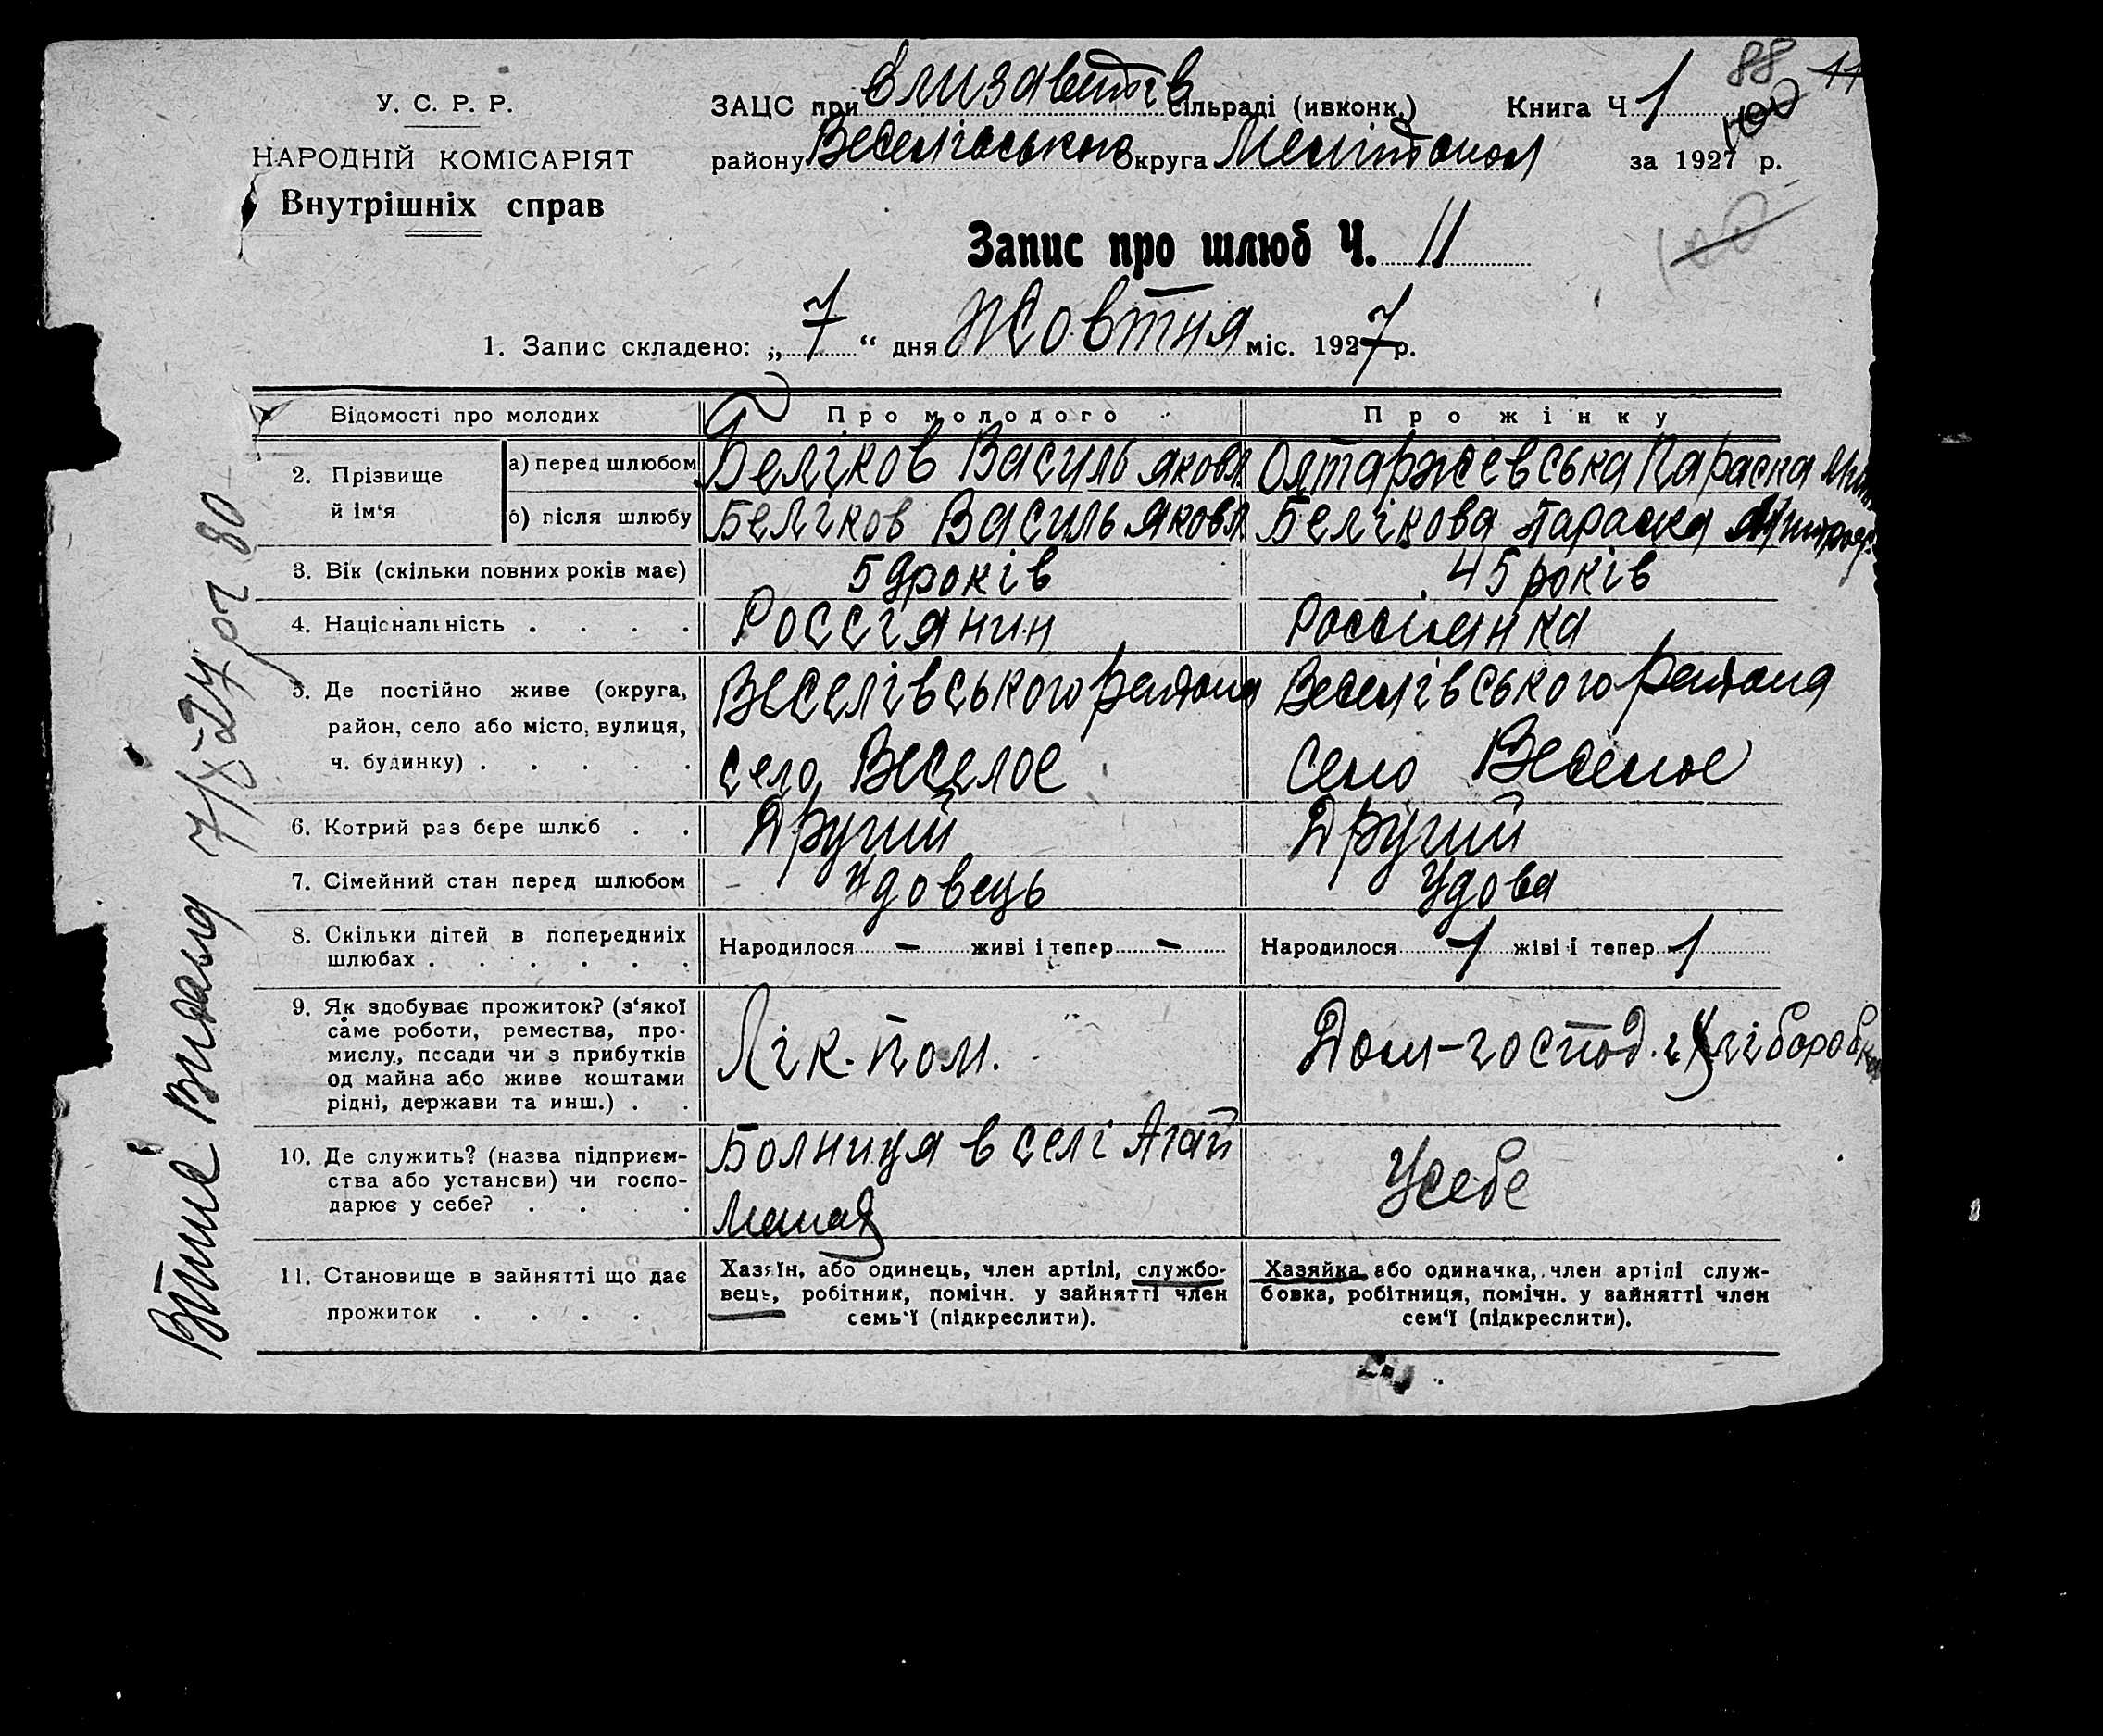 88 11
У. С. Р. Р.
ЗАЦС при Єлизаветів сільраді (ивконк.) Книга Ч 1 100
НАРОДНІЙ КОМІСАРІЯТ
району Веселівською округа Мелітопол за 1927 р.
Внутрішніх справ
100
Запис про шлюб Ч. 11
1. Запис складено: „ 7 “ дня Жовтня міс. 1927 р.
Відомості про молодих Про молодого Про жінку
2. Прізвище й ім‘я
а) перед шлюбом Беліков Василь Яковл Олтаржевська Параска
б) після шлюбу Беліков Василь Яковл Белікова Параска
3. Вік (скільки повних років має) 59 років 45 років
4. Національність . . . . Россіянин Россіянка
5. Де постійно живе (округа, Веселівського района Веселівського района
район, село або місто, вулиця,
ч. будинку) . . . . . село Веселое село Веселое
6. Котрий раз бере шлюб . . Другий Другий
7. Сімейний стан перед шлюбом Удовець Удова
8. Скільки дітей в попередниіх Народилося - живі і тепер - Народилося 1 жіві і тепер 1
шлюбах . . . . . .
9. Як здобуває прожиток? (з‘якої
саме роботи, ремества, про-
мислу, посади чи з прибутків Лік. пом. Дом-господ.
од майна або живе коштами
рідні, держави та инш.) . .
10. Де служить? (назва підприєм- Болниця в селі Агай
ства або установи) чи госпо- Усебе
дарює у себе? . . . .
11. Становище в зайнятті що дає Хазяїн, або одинець, член артілі, службо- Хазяйка або одиначка, член артілі служ-
прожиток . . . . вець, робітник, помічн. у зайнятті член бовка, робітниця, помічн. у зайнятті член
семь‘ї (підкреслити). сем‘ї (підкреслити).
7/X-27 р № 80